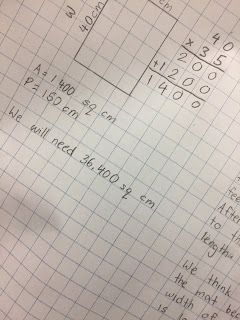 W
40cm
40
x 35
200
+1200
1400
A = 1,400 sq cm
P = 150 cm
We will need 36,400 sq cm
After
to
length
We think
the mat
width of
is